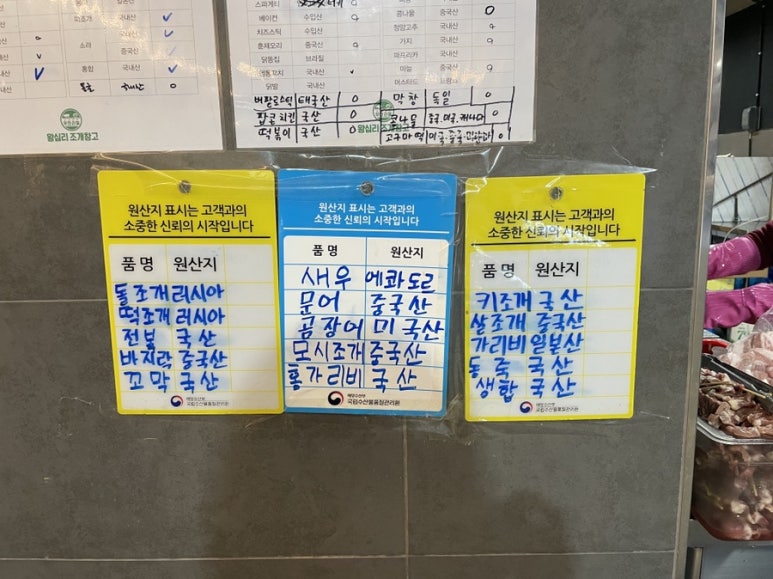 스파게티
베이컨 수입산
치즈스틱 수입산
훈제오리 중국산
닭똥집 브라질
국내산
닭발 국내산
버팔로스틱 태국산 0
팝콘치킨 국산 0
떡볶이 국산 0
콩나물 국내산 0
청양고추 국내산
가지 국내산
파프리카 국내산
마늘 중국산
머스타드
막창 독일 0
고구마떡 미국.중국. 0
국내산
소라 중국산
홍합 국내산
국내산 0
왕십리 조개창고
왕십리 조개창고
원산지 표시는 고객과의
소중한 신뢰의 시작입니다
품 명 원산지
돌조개 러시아
떡조개 러시아
전복 국산
바지락 중국산
꼬막 국산
해양수산부
국립수산물품질관리원
원산지 표시는 고객과의
소중한 신뢰의 시작입니다
품 명 원산지
새우 에콰도르
문어 중국산
곰장어 미국산
모시조개 중국산
홍가리비 국산
해양수산부
국립수산물품질관리원
원산지 표시는 고객과의
소중한 신뢰의 시작입니다
품 명 원산지
키조개 국산
살조개 중국산
가리비 일본산
동죽 국산
생합 국산
해양수산부
국립수산물품질관리원